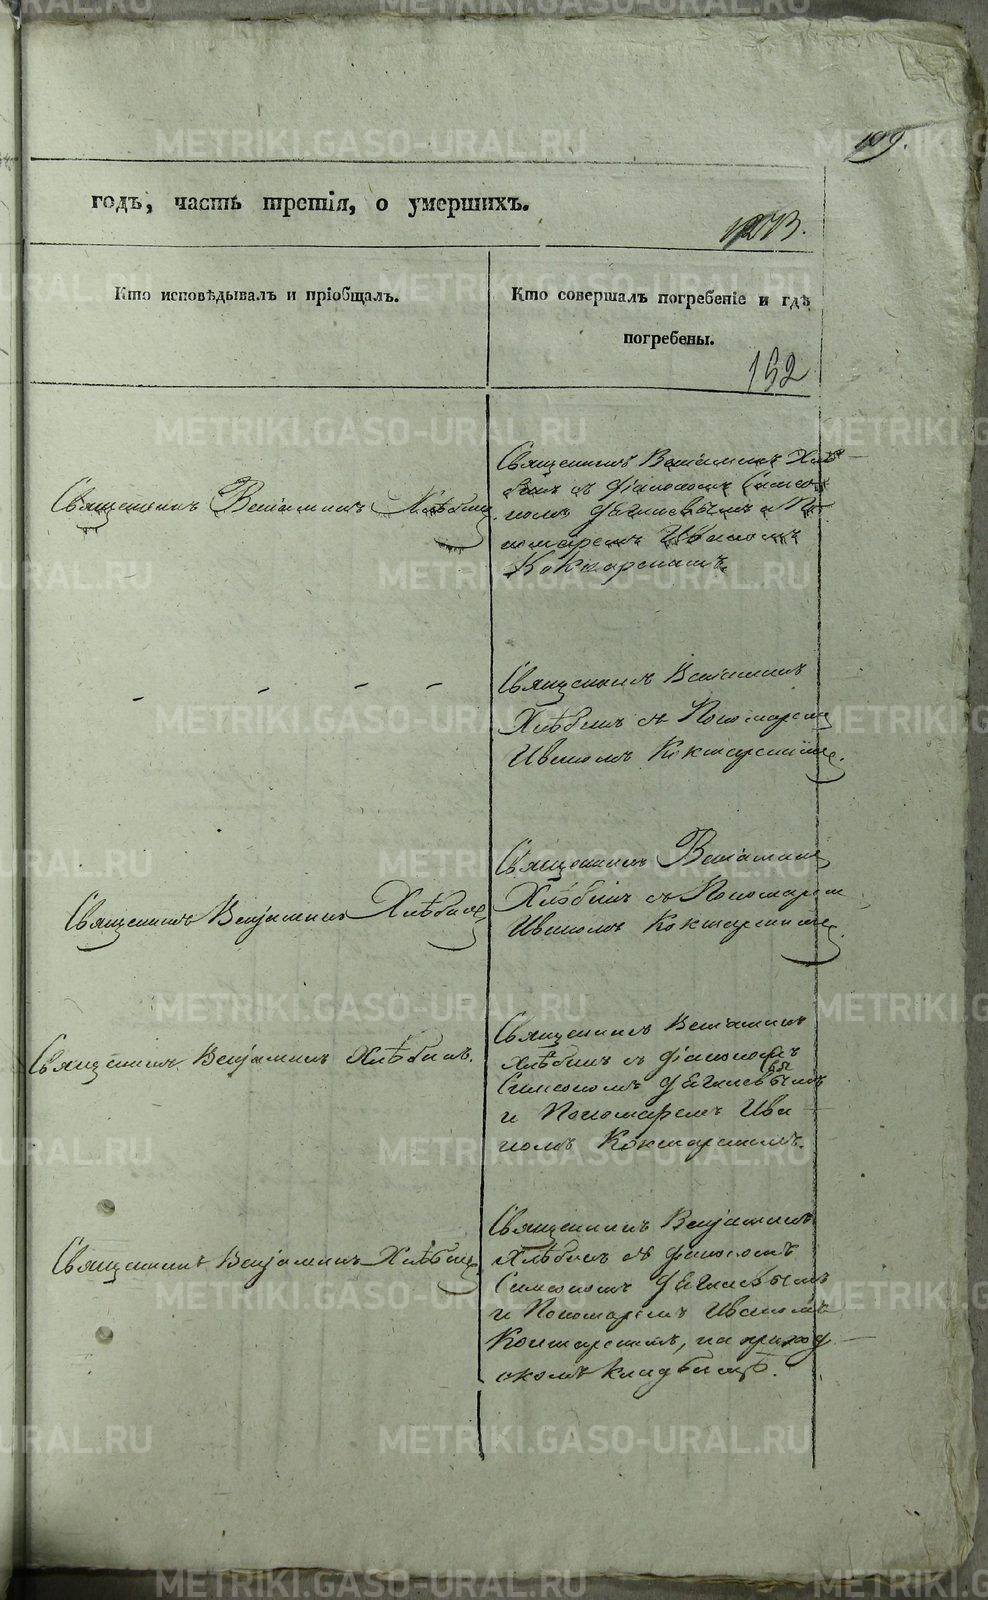 109.
годъ, часть третія, о умершихъ.
1273.
Кто исповѣдывалъ и пріобщалъ.
Кто совершалъ погребеніе и гдѣ
погребены.
152
Священникъ Веніаминъ Хлѣбинъ
Священникъ Веніаминъ Хлѣ-
бинъ съ Діакономъ Симео-
номъ и По-
номаремъ Иваномъ
Священникъ Веніаминъ
Хлѣбинъ съ Пономаремъ
Иваномъ
Священникъ Веніаминъ Хлѣбинъ
Священникъ Веніаминъ
Хлѣбинъ съ Пономаремъ
Иваномъ
Священникъ Веніаминъ Хлѣбинъ.
Священникъ Веніаминъ
Хлѣбинъ съ Діакономъ
Симеономъ
и Пономаремъ Ива-
номъ
Священникъ Веніаминъ Хлѣбинъ
Священникъ Веніаминъ
Хлѣбинъ съ Діакономъ
Симеономъ
и Пономаремъ Иваномъ
на приход-
скомъ кладбищѣ.
METRIKI.GASO-URAL.RU